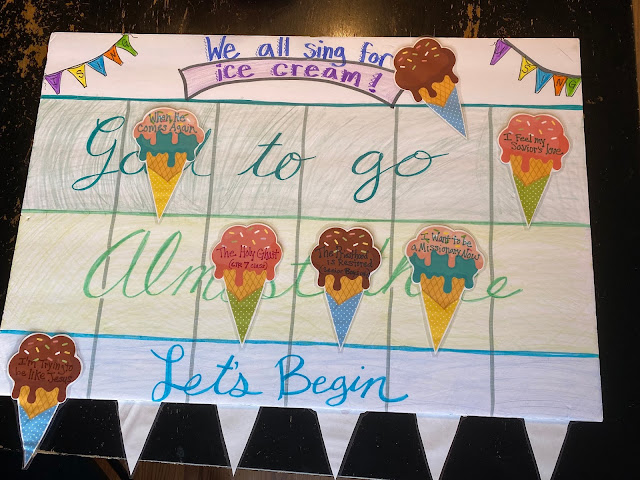 We all sing for
ice cream!
When He
Comes Again
I Feel my
Savior's love
Good to go
The Holy Ghost
The Priesthood
is Restored
I Want to be
a Missionary Now
Almost there
I'm Trying to
be like Jesus
Let's Begin